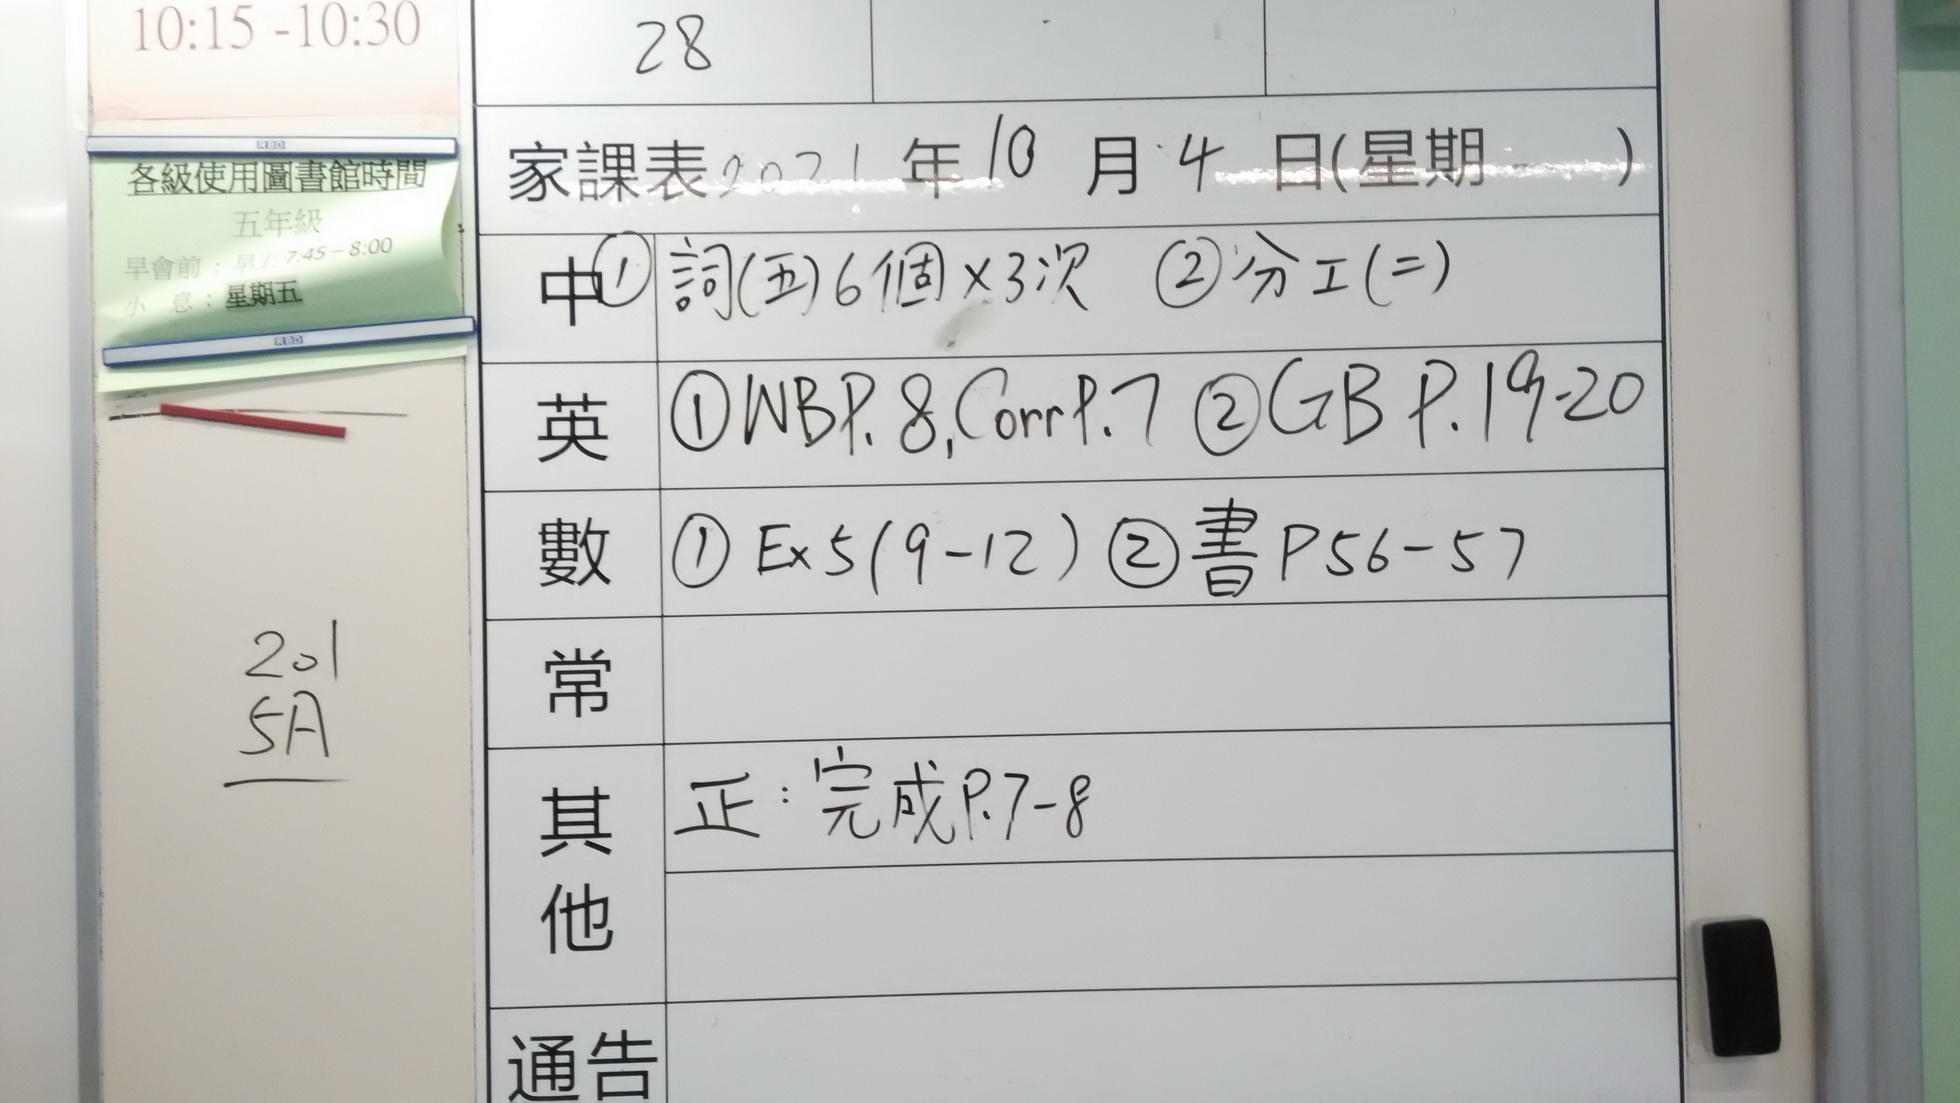 10:15 -10:30
28
RBD
各級使用圖書館時間
五年級
早會前：早上 7:45－8:00
小 息：星期五
RBD
201
5A
家課表2021年10月4日(星期一)
中 ① 詞(五)6個×3次 ②分工(二)
英 ①WBP.8,Corr P.7 ②GB P.19-20
數 ① Ex5(9-12) ②書P56-57
常
其他 正：完成P.7-8
通告